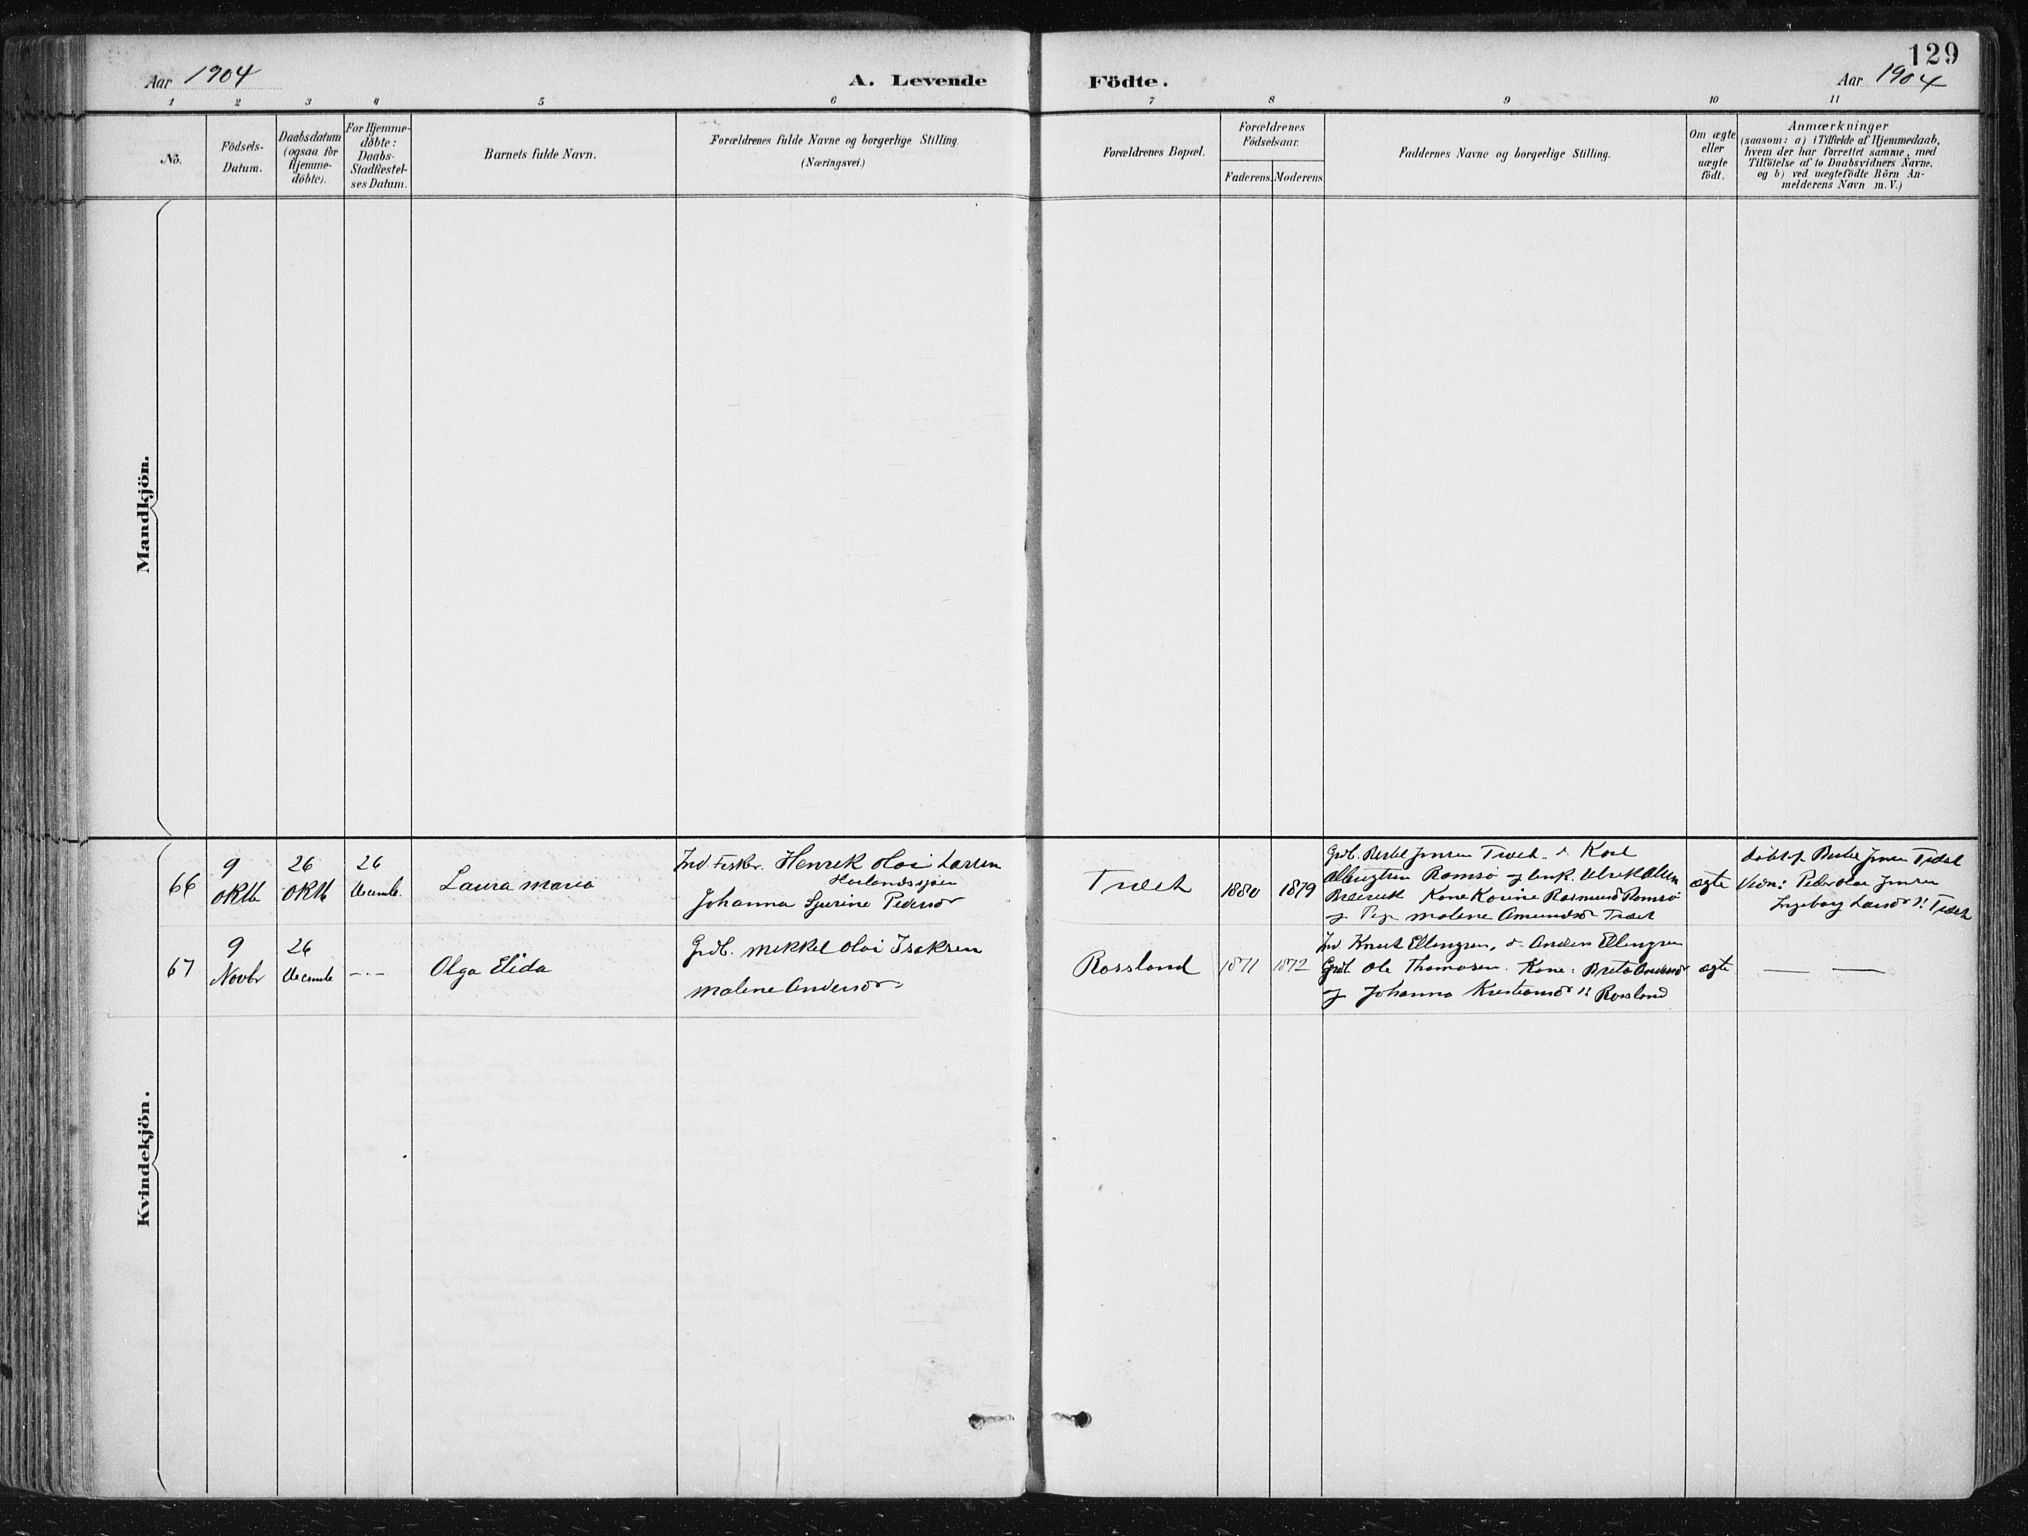 129
Aar 1904
A. Levende
Födte.
Aar 1904
1 2 3 4 5 6 7 8 9 10 11
No.
Födsels-
Datum.
Daabsdatum
(ogsaa för
Hjemme-
döbte).
For Hjemme-
döbte:
Daabs-
Stadfæstel-
ses Datum.
Barnets fulde Navn.
Forældrenes fulde Navne og borgerlige Stilling.
(Næringsvei.)
Forældrenes Bopæl.
Forældrenes
Födselsaar.
Faderens. Moderens.
Faddernes Navne og borgerlige Stilling.
Om ægte
eller
uægte
födt.
Anmærkninger
(saasom: a) i Tilfælde af Hjemmedaab,
hvem der har forrettet samme, med
Tilföielse af to Daabsvidners Navne,
og b) ved uægtefödte Börn An-
melderens Navn m. V.)
Mandkjön.
Kvindekjön.
66
9
Oktb
26
Oktb
26
Decemb.
Laura Maria
Ind. Fisker. Henrik Olai Larsen
Johanna Sjurine Pedersdr
Træet
1880
1879
Grdb. Bertel Jensen Træet
Romsö
Kone Korine Rasmusd Romsö
og Pige Malene Amundsdr Træet
ægte
Bertel Jensen Træet
Vidn: Peder Olai Jensen
Ingeborg Larsdr Træet
67
9
Novbr
26
Decemb
-..-
Olga Elida
Grdb. Mikkel Olai Isaksen
Malene Andersdr
Rossland
1871
1872
Knut Ellingsen, Anders Ellingsen
Grdb. Ole Thomasen. Kone: Brita Andersdr
og Johanna Kristiansdr Rossland
ægte
— —